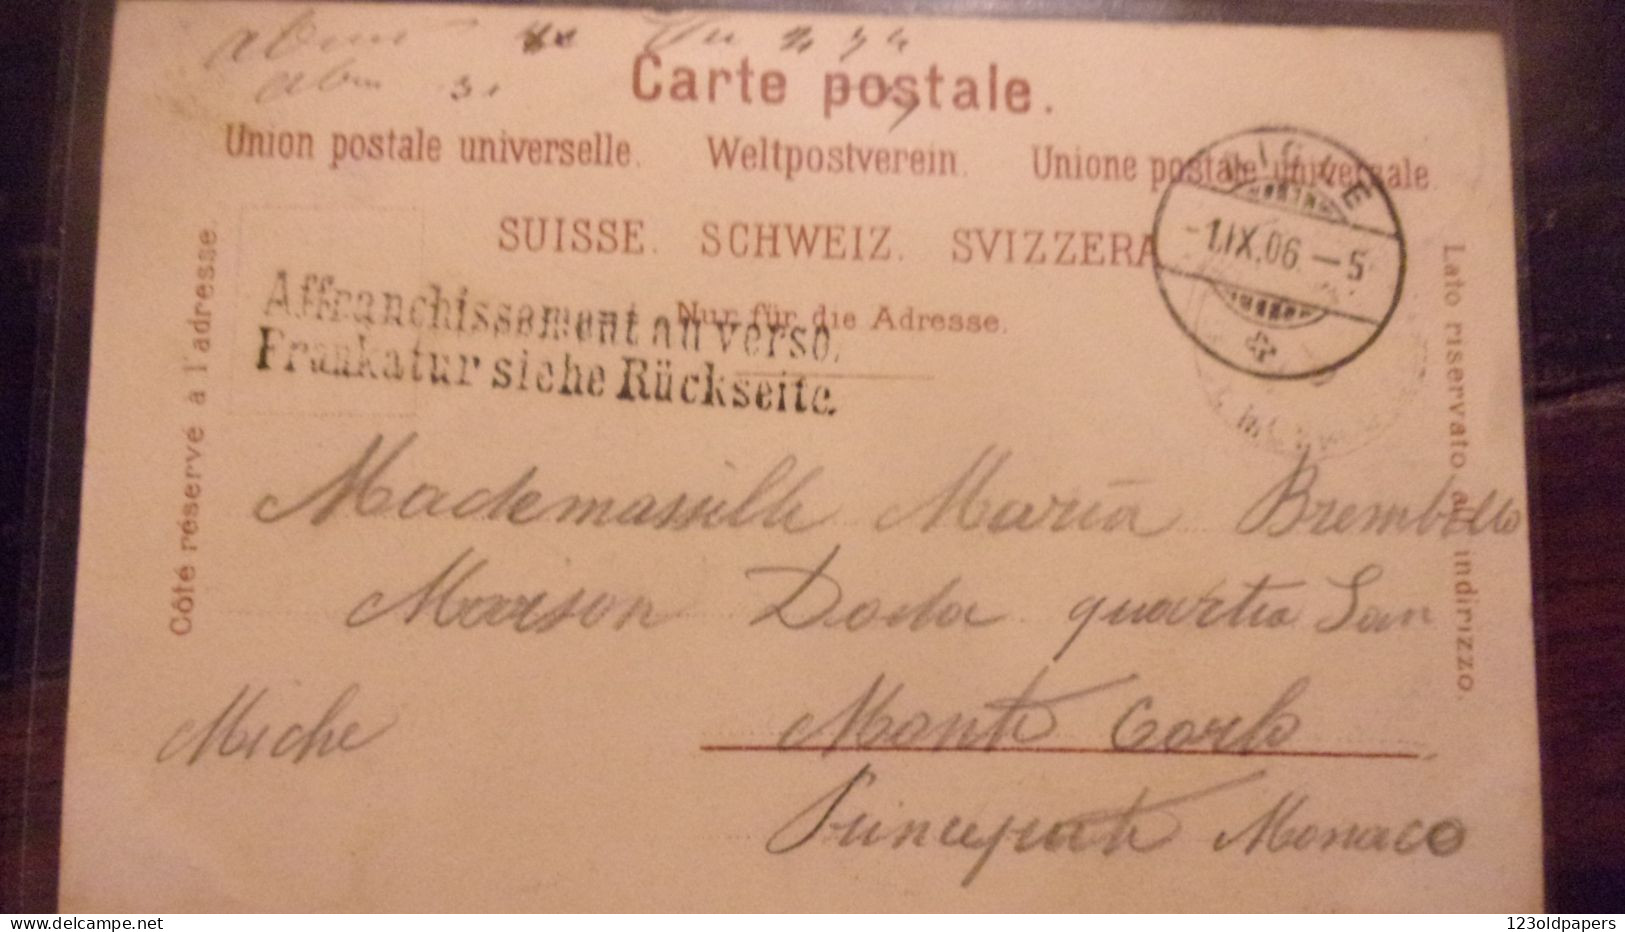 Carte postale.
Union postale universelle. Weltpostverein. Unione postale universale.
SUISSE. SCHWEIZ. SVIZZERA
Nur für die Adresse.
Côté réservé à l'adresse.
Lato riservato all indirizzo.
-1.IX.06.-5
Affranchissement au verso.
Frankatur siehe Rückseite.
Mademasselle Maria Brembilla
Maison Doda quartia San
Miche Monte Carlo
Principaute Monaco
delcampe.net
123oldpapers